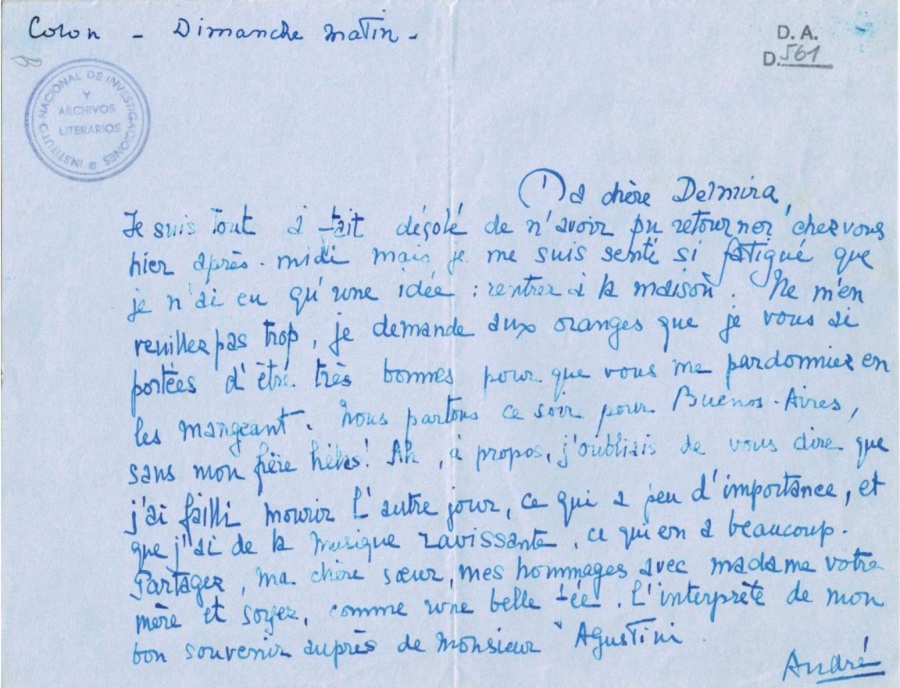 Colon - Dimanche matin -
D. A.
D. 561
INSTITUTO NACIONAL DE INVESTIGACIONES
Y
ARCHIVOS
LITERARIOS
Ma chère Delmira,
Je suis tout à fait désolé de n'avoir pu retourner chez vous
hier après-midi mais je me suis senti si fatigué que
je n'ai eu qu'une idée : rentrer à la maison. Ne m'en
veuillez pas trop, je demande aux oranges que je vous ai
portées d'être très bonnes pour que vous me pardonniez en
les mangeant. Nous partons ce soir pour Buenos-Aires,
sans mon frère hélas! Ah, à propos, j'oubliais de vous dire que
j'ai failli mourir l'autre jour, ce qui a peu d'importance, et
que j'ai de la musique ravissante, ce qui en a beaucoup.
Partagez, ma chère sœur, mes hommages avec madame votre
mère et soyez, comme une belle fée, l'interprète de mon
bon souvenir auprès de monsieur Agustini
André